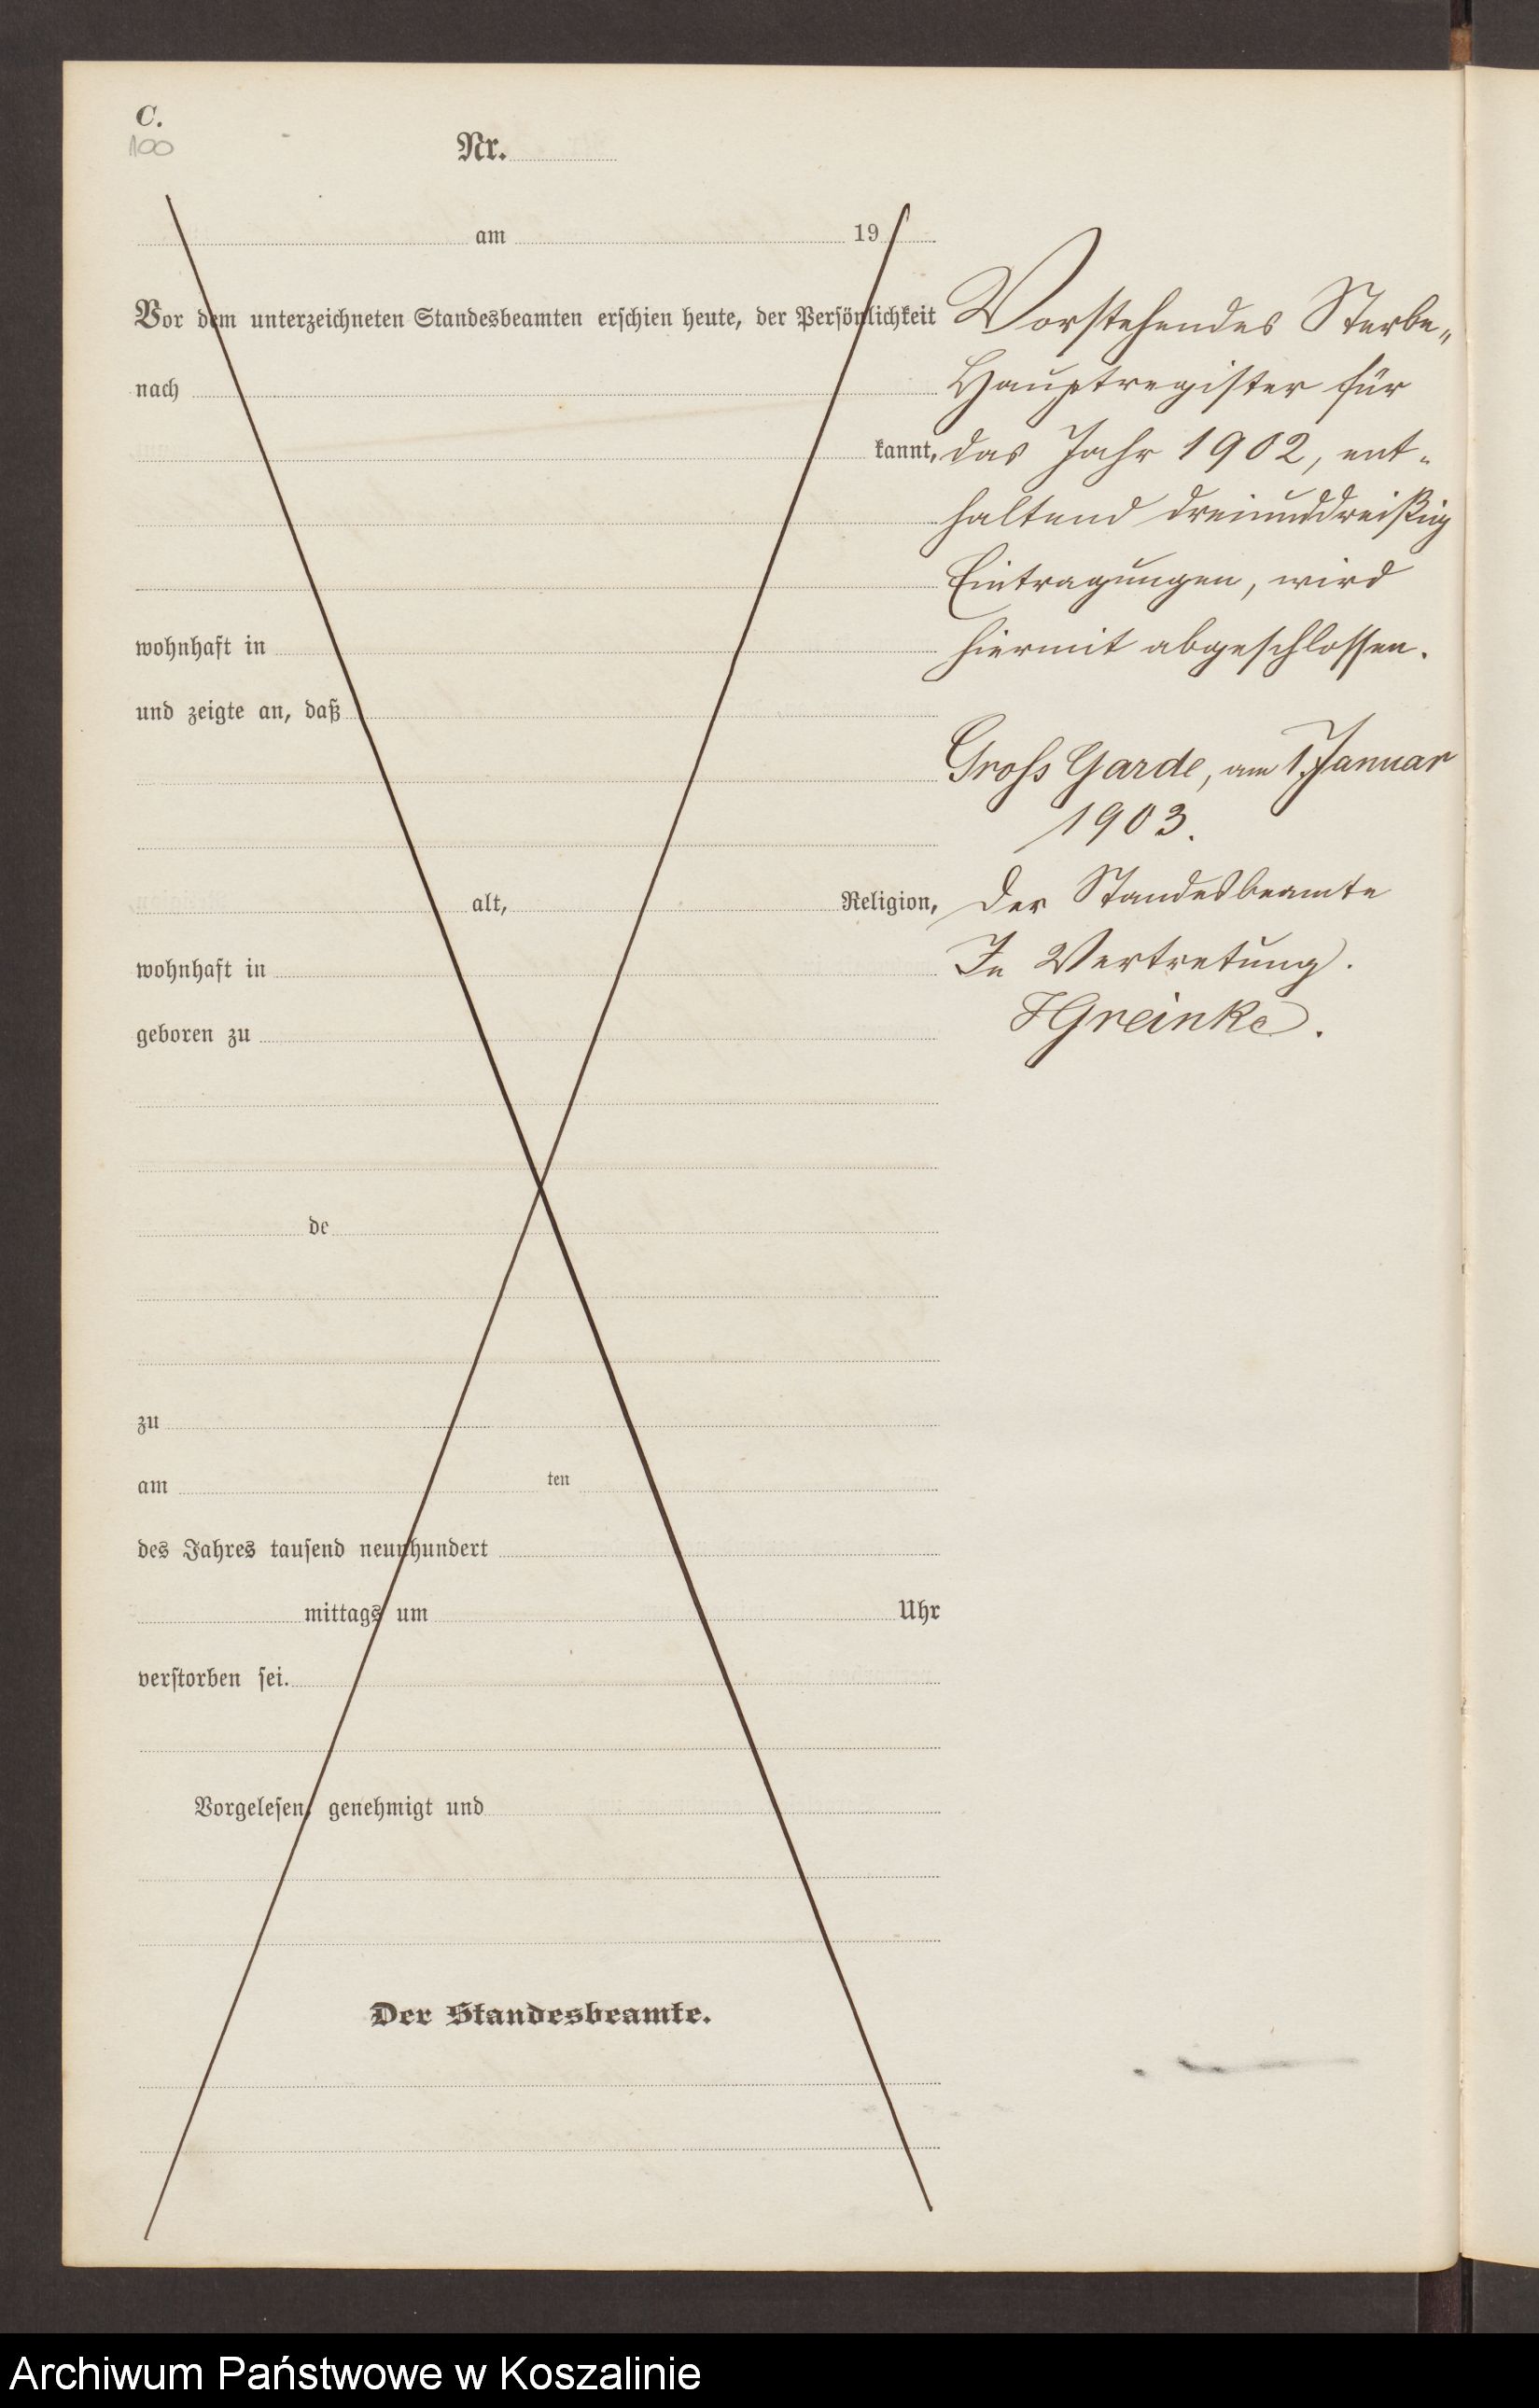 C.
100
Nr.
am 19
Vor dem unterzeichneten Standesbeamten erschien heute, der Persönlichkeit
nach
kannt,
wohnhaft in
und zeigte an, daß
alt, Religion,
wohnhaft in
geboren zu
de
zu
am ten
des Jahres tausend neunhundert
mittags um Uhr
verstorben sei.
Vorgelesen, genehmigt und
Der Standesbeamte.
Vorstehendes Sterbe-
Hauptregister für
das Jahr 1902, ent-
haltend dreiunddreißig
Eintragungen, wird
hiermit abgeschlossen.
Gross Garde, am 1. Januar
1903.
Der Standesbeamte
In Vertretung.
HGreinke.
Archiwum Państwowe w Koszalinie